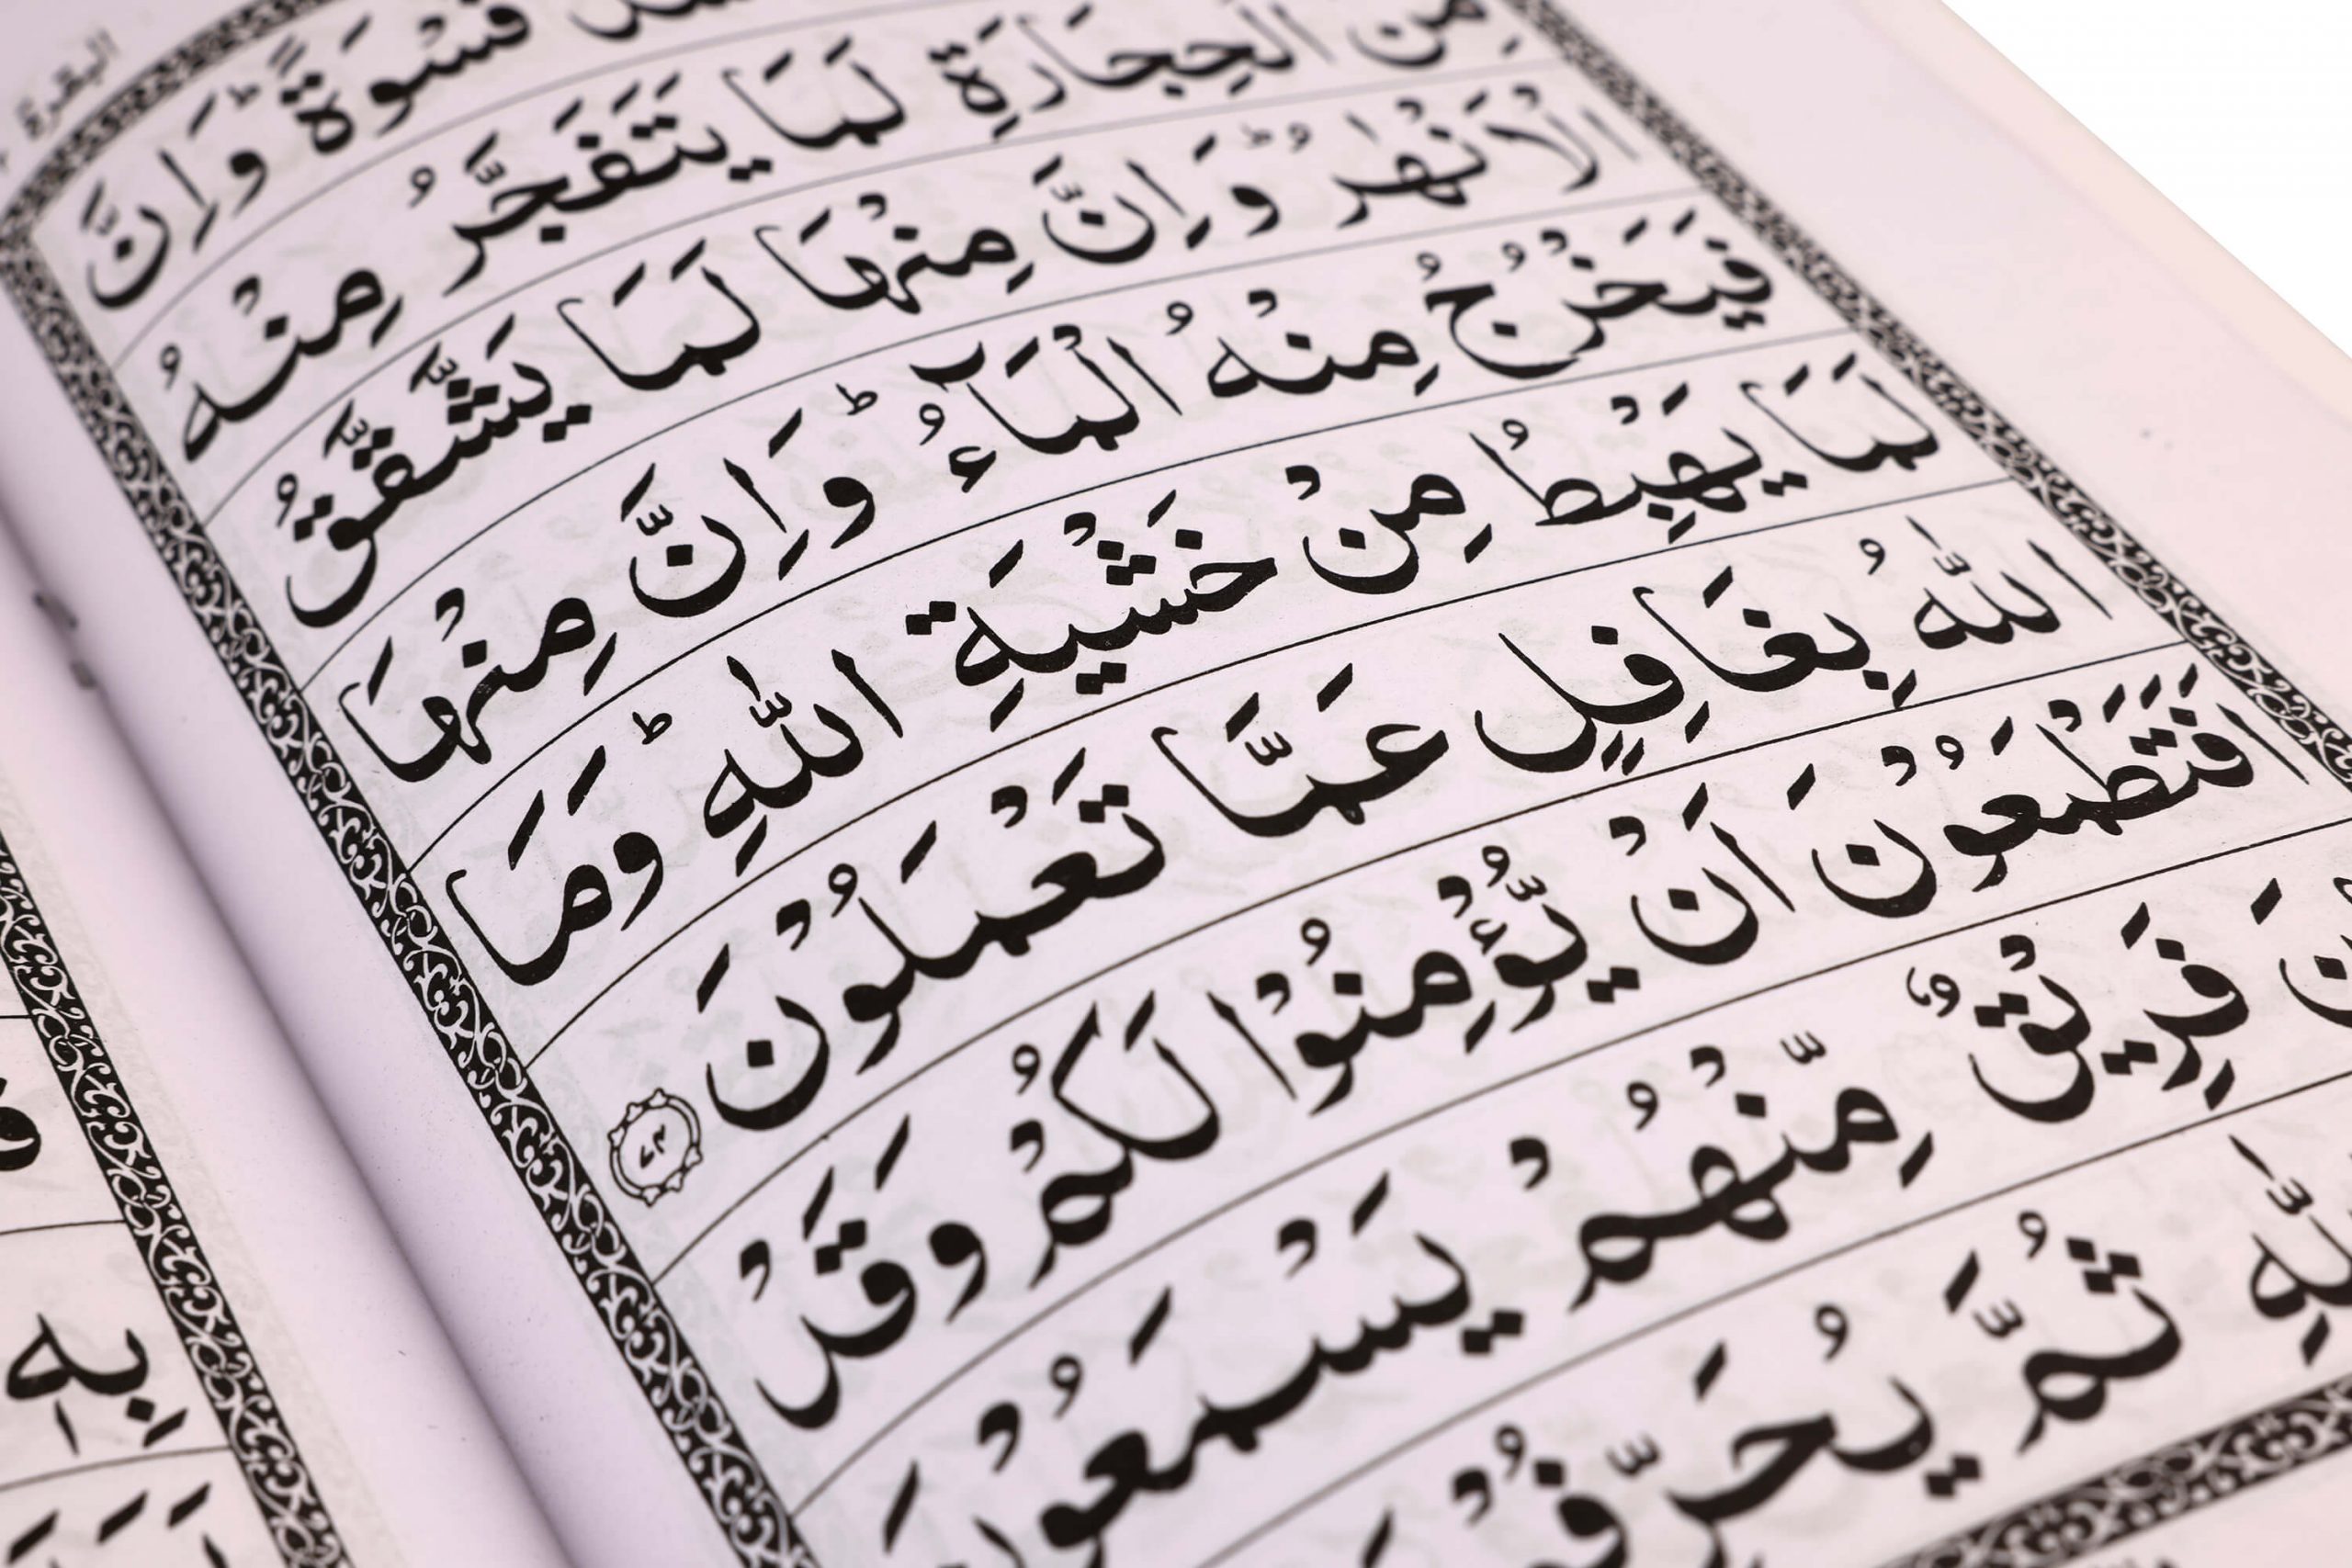 البقرة
قَسْوَةً ؕ وَاِنَّ
مِنَ الْحِجَارَةِ لَمَا يَتَفَجَّرُ مِنْهُ
الْاَنْهٰرُ ؕ وَاِنَّ مِنْهَا لَمَا يَشَّقَّقُ
فَيَخْرُجُ مِنْهُ الْمَآءُ ؕ وَاِنَّ مِنْهَا
لَمَا يَهْبِطُ مِنْ خَشْيَةِ اللّٰهِ ؕ وَمَا
اللّٰهُ بِغَافِلٍ عَمَّا تَعْمَلُوْنَ ۟۷۴
اَفَتَطْمَعُوْنَ اَنْ يُّؤْمِنُوْا لَكُمْ وَقَدْ
فَرِيْقٌ مِّنْهُمْ يَسْمَعُوْنَ
ثُمَّ يُحَرِّفُ
بِهٖ